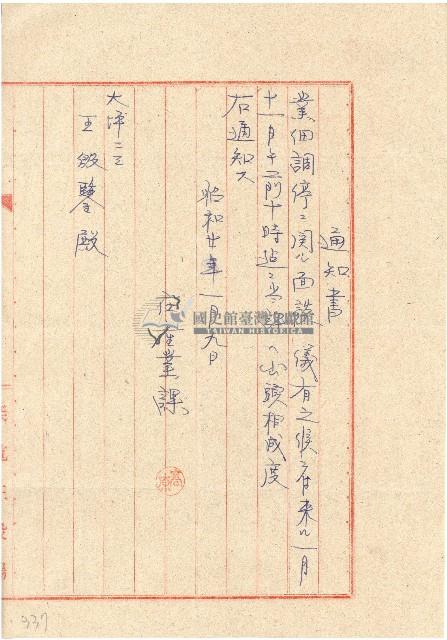 通知書
業佃調停ニ関シ面談ノ儀有之候ニ付来ル一月
十一日午前十時迄ニ当課ヘ出頭相成度
右通知ス
昭和廿年一月九日
業課
大坪二三
王 鑒殿
國史館臺灣文獻館
TAIWAN HISTORICA
337